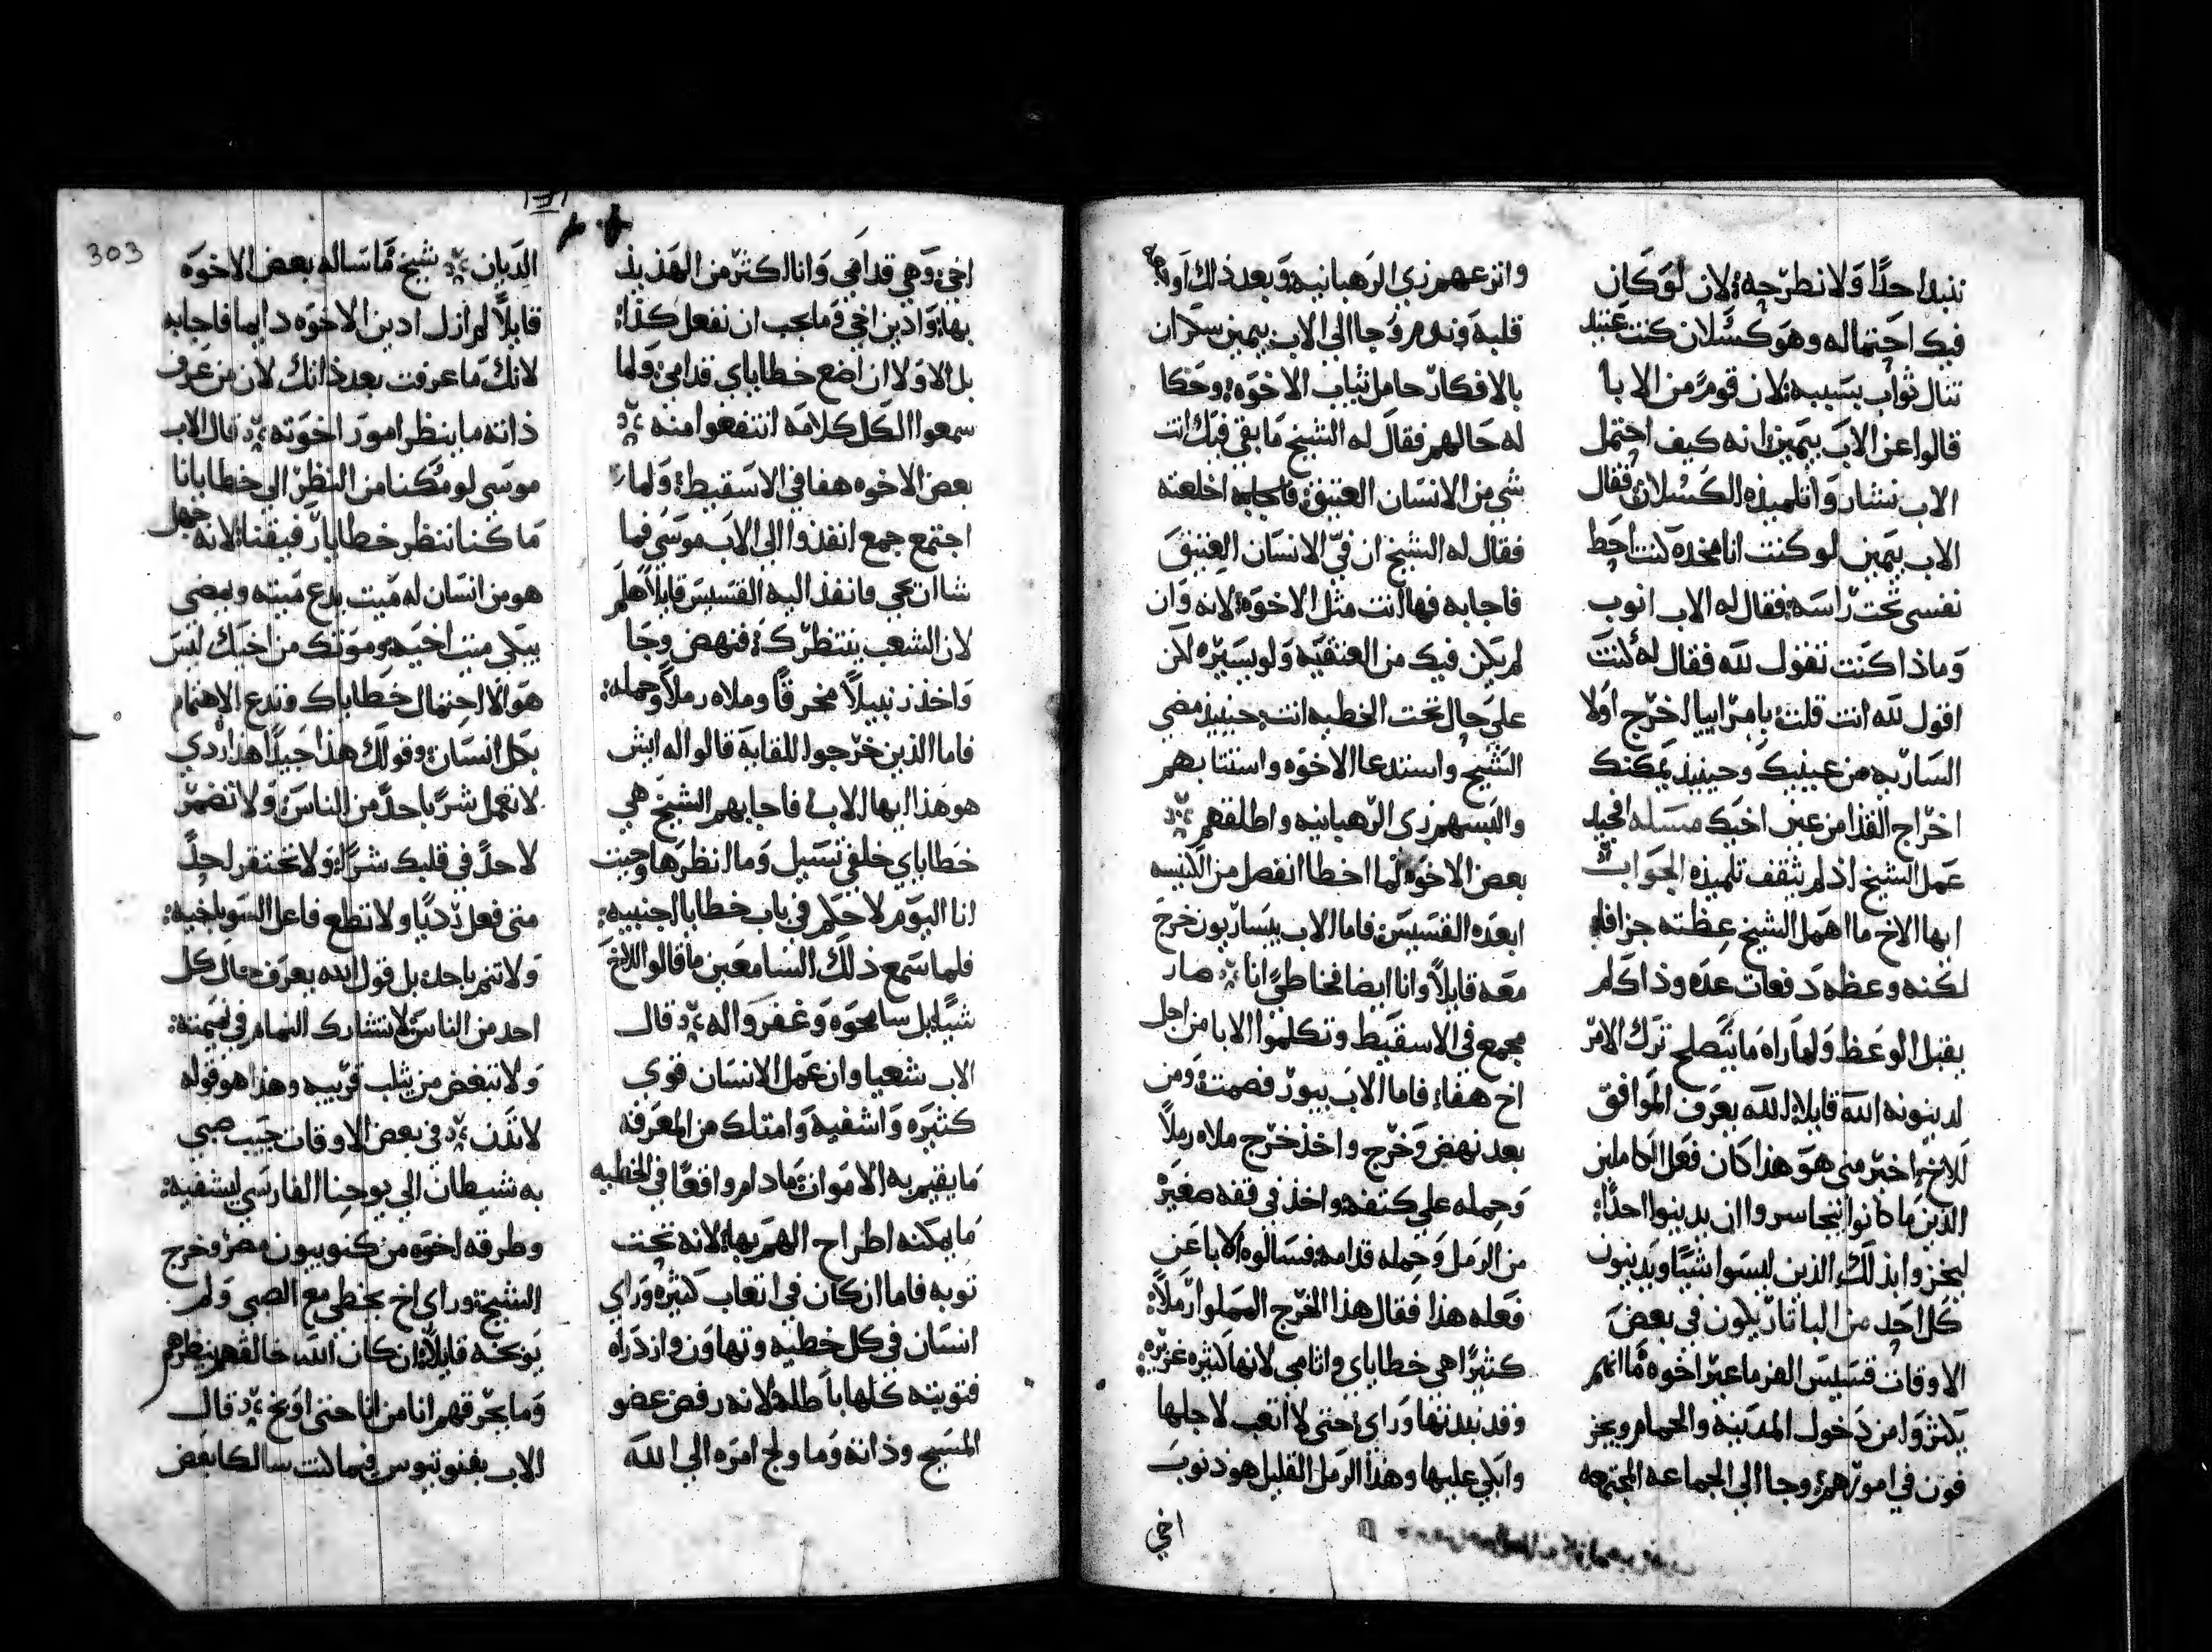 ننبد احدًا ولا نطرحه لان لو كان
فيك احتماله وهو كسلان كنت عتيد
تنال ثواب بسببه لان قوم من الابا
قالوا عن الاب بيمين انه كيف احتمل
الاب وتلميذه الكسلان فقال
الاب بيمين لو كنت انا مخده كنت احط
نفسي تحت راسه فقال له الاب انوب
وماذا كنت تقول لله فقال له كنت
اقول لله انت قلت يا مرايي اخرج اولا
الساريه من عينيك وحينيذ يمكنك
اخراج القذا من عين اخيك مسله افجيد
عمل الشيخ اذ لم يثقف تلميذه الجواب
ايها الاخ ما اهمل الشيخ عظته جزافا
لكنه وعظه دفعات عده وذاك لم
يقبل الوعظ ولما راه ما يتصلح ترك الامر
لدينونه الله قايلا الله يعرف الموافق
للاخ اخبر مني هو هذا كان فعل الكاملين
الذين ما كانوا يتجاسروا ان يدينوا احدًا
ليخزوا بذلك الذين ليسوا شيًا ويدينون
كل احد من البابا تاريلون في بعض
الاوقات قسيس الفرما عبر اخوه ما انهم
يكثروا من دخول المدينه والحمام ويعجز
فون في امورهم وجا الي الجماعه المجتمعه
وانزع عنهم زي الرهبانيه وبعد ذلك اوجعه
قلبه وندم وجا الي الاب بيمين سكران
بالافكار حامل ثياب الاخوه وحكا
له حالهم فقال له الشيخ ما بقي فيك انت
شي من الانسان العتيق فاجابه اخلعته
فقال له الشيخ ان في الانسان العتيق
فاجابه فها انت مثل الاخوه لانه وان
لم يكن فيك من العتقيه ولو يسيره لكن
علي حال تحت الخطيه انت حينيذ مضي
الشيخ واستدعا الاخوه واستتابهم
والبسهم زي الرهبانيه واطلقهم
بعض الاخوه لما اخطا انفصل من الكنيسه
ابعده القسيس فاما الاب بيساريون خرج
معه قايلًا وانا ايضا فخاطي انا صار
مجمع في الاسقيط وتكلموا الابا من اجل
اخ هفا فاما الاب بيور فصمت ومن
بعد نهض وخرج واخذ خرج ملاه رملًا
وحمله علي كتفه واخذ في قفه صغيره
من الرمل وحمله قدامه فسالوه الابا عن
فعله هذا فقال هذا الخرج المملوا رملًا
كثيرًا هي خطاياي واثامي لانها كثيره غزيره
وقد نبدتها وراي حتي لا اتعب لاجلها
وابكي عليها وهذا الرمل القليل هو ذنوب
اخي
اخي وهي قدامي وانا اكثر من الهذيذ
بها وادين اخي وما يجب ان نفعل كذا
بل الاولا ان اضع خطاياي قدامي ولما
سمعوا الكل كلامه انتفعوا منه
بعض الاخوه هفا في الاسقيط ولما
اجتمع جمع انفذوا الي الاب موسي فما
شا ان يجي فانفذ اليه القسيس قايلا هلم
لان الشعب ينتظرك فنهض وجا
واخذ زنبيلًا مخرقًا وملاه رملًا وحمله
فاما الذين خرجوا للقايه قالوا له ايش
هو هذا ايها الاب فاجابهم الشيخ هي
خطاياي خلفي تسيل وما انظرها وجيت
انا اليوم لاحكم في باب خطايا اجنبيه
فلما سمع ذلك السامعين ما قالوا للاخ
شيًا بل سامحوه وغفروا له قال
الاب شعيا وان عمل الانسان قوي
كثيره واشفيه وامتلك من المعرفه
ما يقيم به الاموات ما دام واقعًا في الخطيه
ما يمكنه اطراح الهم بها لانه تحت
توبه فاما ان كان في اتعاب كثيره وراي
انسان في كل خطيه وتهاون وازدراه
فتوبته كلها باطله لانه رفض عضو
المسيح وذاته وما ولج امره الي الله
303
الديان شيخ ما ساله بعض الاخوه
قايلًا لم ازل ادين الاخوه دايما فاجابه
لانك ما عرفت بعد ذاتك لان من عرف
ذاته ما ينظر امور اخوته قال الاب
موسي لو مكنا من النظر الي خطايانا
ما كنا ننظر خطايا رفيقنا لانه جهل
هو من انسان له ميت يدع ميته ويمضي
يبكي ميت اخيه وموتك من اخيك ليس
هو الا احتمال خطاياك وتدع الاهتمام
بكل انسان وقولك هذا جيدًا هذا ردي
لا تعمل شرًا باحدًا من الناس ولا تضمر
لاحدًا في قلبك شرًا ولا تحتقر احدًا
متي فعل رديًا ولا تطع فاعل السو باخيه
ولا تنم باحد بل قول الله يعرف حال كل
احد من الناس لا تشارك النمام في نميمته
ولا تبغض من يثلب قريبه وهذا هو قوله
لا تدن في بعض الاوقات جيب صبي
به شيطان الي يوحنا الفارسي ليشفيه
وطرقه اخوه من كنوبيون مصر وخرج
الشيخ وراي اخ يخطي مع الصبي ولم
يوبخه قايلًا ان كان الله خالقهم ينظرهم
وما يحرقهم انا من انا حتي اوبخ قال
الاب بفنوتيوس فيما كنت سالكا بعض